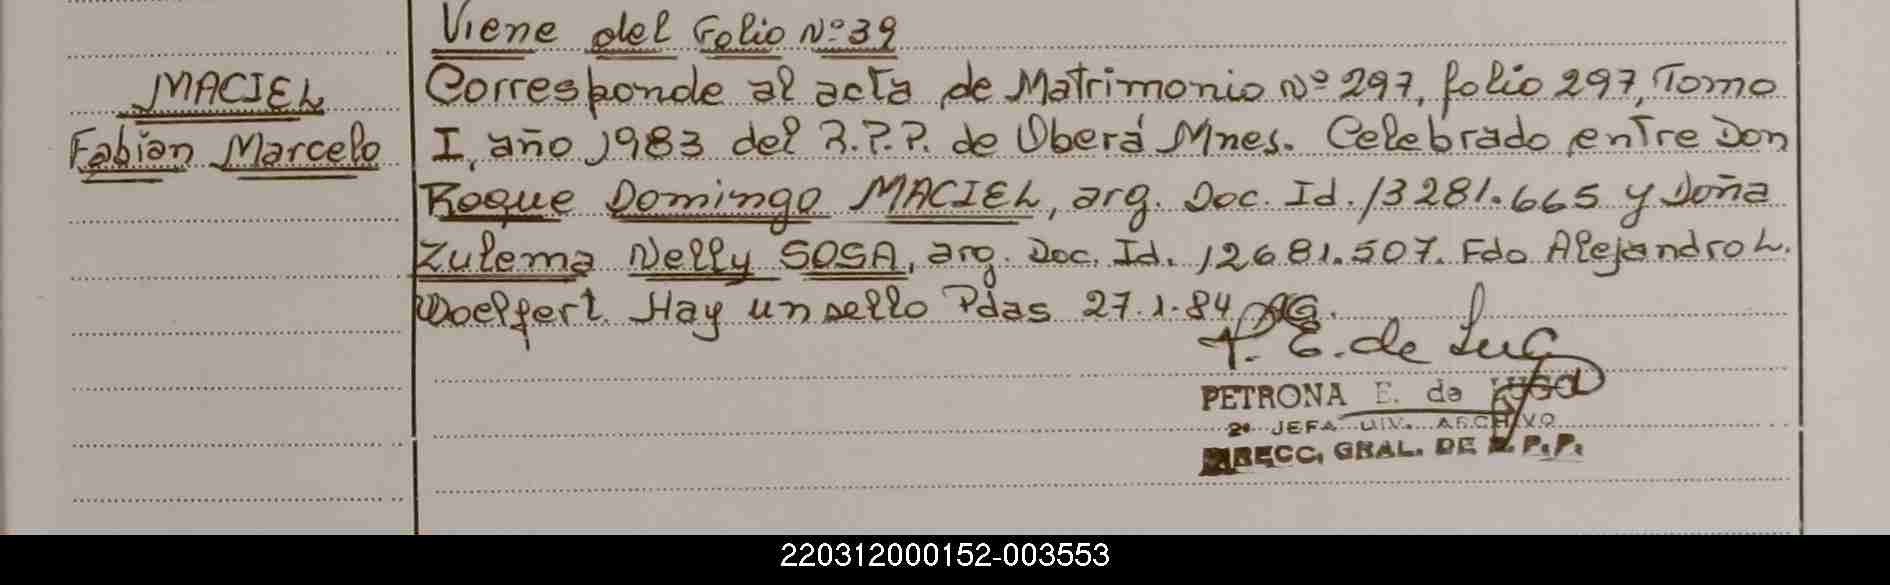 Viene del Folio Nº 39
MACIEL
Fabian Marcelo
Corresponde al acta de Matrimonio Nº 297, folio 297, Tomo
I, año 1983 del R.P.P. de Oberá Mnes. Celebrado entre Don
Roque Domingo MACIEL, arg. Doc. Id. 13281.665 y Doña
Zulema Nelly SOSA, arg. Doc. Id. 12681.507. Fdo Alejandro L.
Woelfert. Hay un sello Pdas 27.1.84
P. E. de Lugo
PETRONA E. de LUGO
2ª JEFA DIV. ARCHIVO
DIRECC. GRAL. DE R.P.P.
220312000152-003553